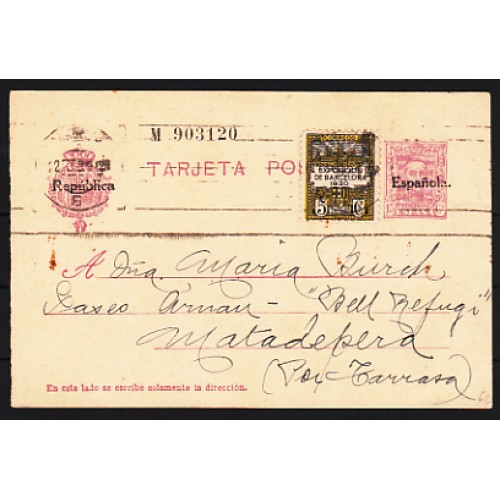 M 903120
TARJETA POS
República
Española.
CORREOS
EXPOSICION
DE BARCELONA
1930
5 CS
ESPAÑA
A Dña. Maria Burch
Paseo Arnau - "Bell Refugi"
Matadepera
(Por Tarrasa)
En este lado se escribe solamente la dirección.